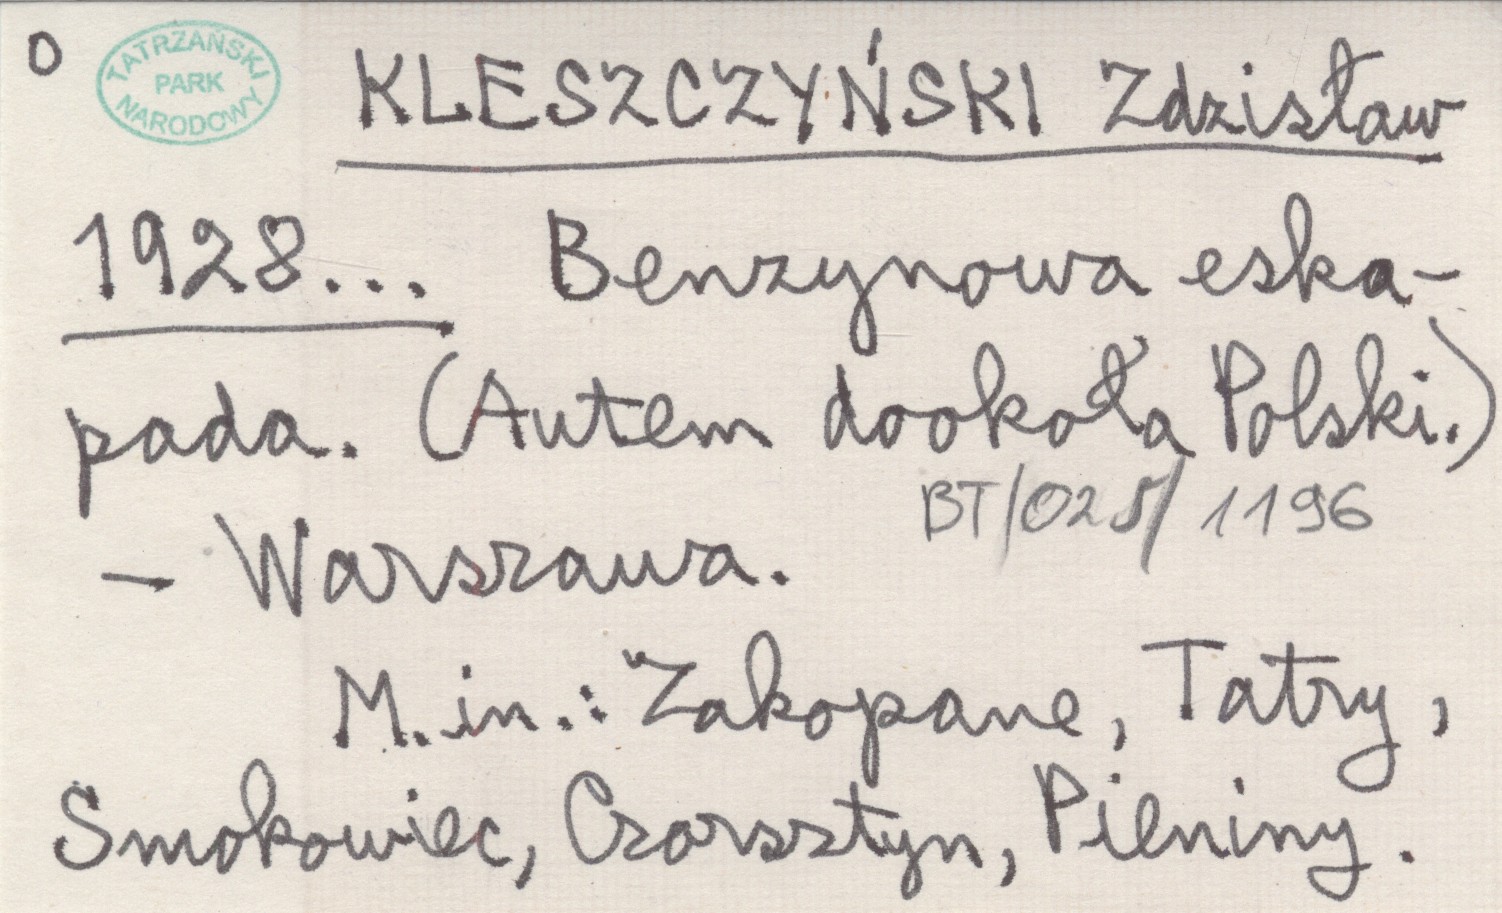 O
TATRZAŃSKI
PARK
NARODOWY
KLESZCZYŃSKI Zdzisław
1928... Benzynowa eska-
pada. (Autem dookoła Polski.)
BT/025/1196
- Warszawa.
M.in.: Zakopane, Tatry,
Smokowiec, Czorsztyn, Pieniny.